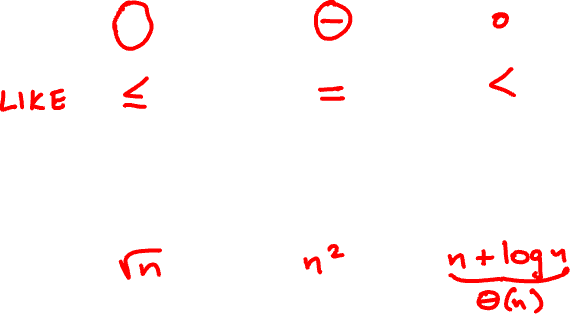 O Θ o
LIKE ≤ = <
√n n² n + log n
Θ(n)